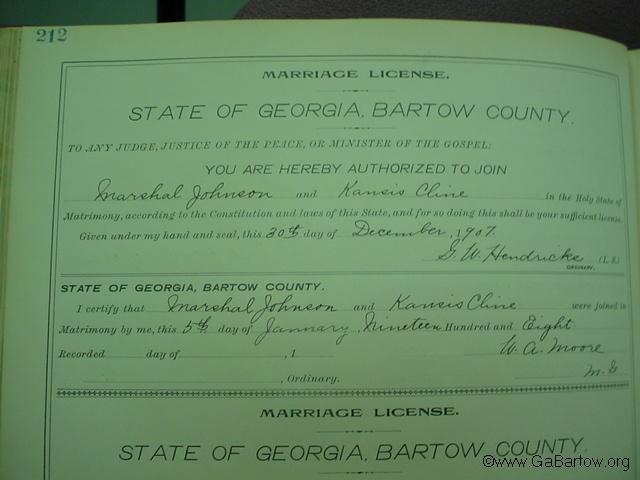 212
MARRIAGE LICENSE.
STATE OF GEORGIA, BARTOW COUNTY.
TO ANY JUDGE, JUSTICE OF THE PEACE, OR MINISTER OF THE GOSPEL:
YOU ARE HEREBY AUTHORIZED TO JOIN
Marshal Johnson and Kansis Cline in the Holy State of
Matrimony, according to the Constitution and laws of this State, and for so doing this shall be your sufficient license.
Given under my hand and seal, this 30th day of December, 1907.
G. W. Hendricks (L. S.)
ORDINARY.
STATE OF GEORGIA, BARTOW COUNTY.
I certify that Marshal Johnson and Kansis Cline were joined in
Matrimony by me, this 5th day of January, Nineteen Hundred and Eight
Recorded day of , 1 W. A. Moore
, Ordinary. M. G
MARRIAGE LICENSE.
STATE OF GEORGIA, BARTOW COUNTY.
©www.GaBartow.org